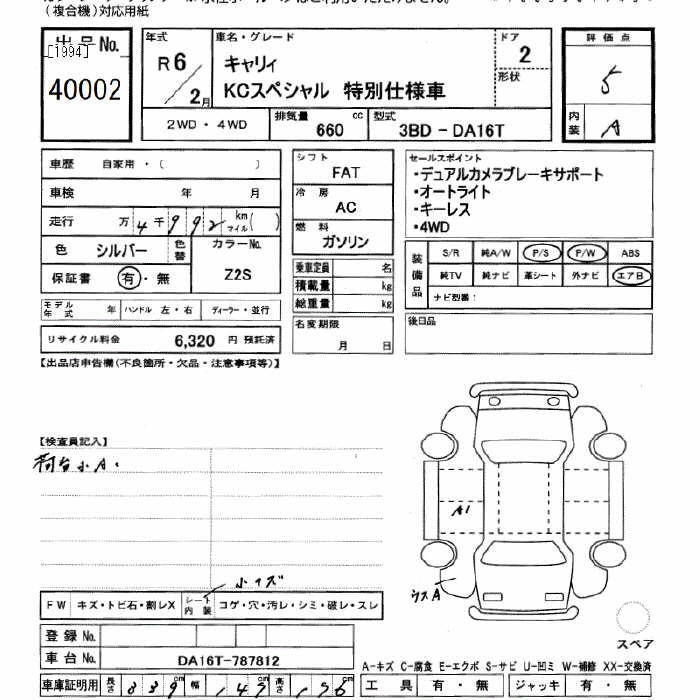 (複合機)対応用紙
出品No.
[1994]
40002
年式
R6/2月
車名・グレード
キャリィ
KCスペシャル 特別仕様車
ドア
2
形状
2WD・4WD
排気量
660 cc
型式
3BD-DA16T
評価点
5
内装
A
車歴 自家用・( )
車検 年 月
走行 万4千992 km マイル( )
色 シルバー 色替
カラーNo.
Z2S
保証書 有・無
モデル年式 年 ハンドル 左・右 ディーラー・並行
リサイクル料金 6,320 円 預託済
シフト
FAT
冷房
AC
燃料
ガソリン
乗車定員 名
積載量 kg
総重量 kg
名変期限
月 日
セールスポイント
・デュアルカメラブレーキサポート
・オートライト
・キーレス
・4WD
装備品
S/R 純A/W P/S P/W ABS
純TV 純ナビ 革シート 外ナビ エアB
ナビ型番:
後日品
【出品店申告欄(不良箇所・欠品・注意事項等)】
【検査員記入】
荷台小A.
A1
ウスA
スペア
小イズ
FW キズ・トビ石・割レX
シート内装 コゲ・穴・汚レ・シミ・破レ・スレ
登録No.
車台No. DA16T-787812
車庫証明用 長さ 339 cm 幅 147 cm 高さ 176 cm
A-キズ C-腐食 E-エクボ S-サビ U-凹ミ W-補修 XX-交換済
工具 有・無 ジャッキ 有・無